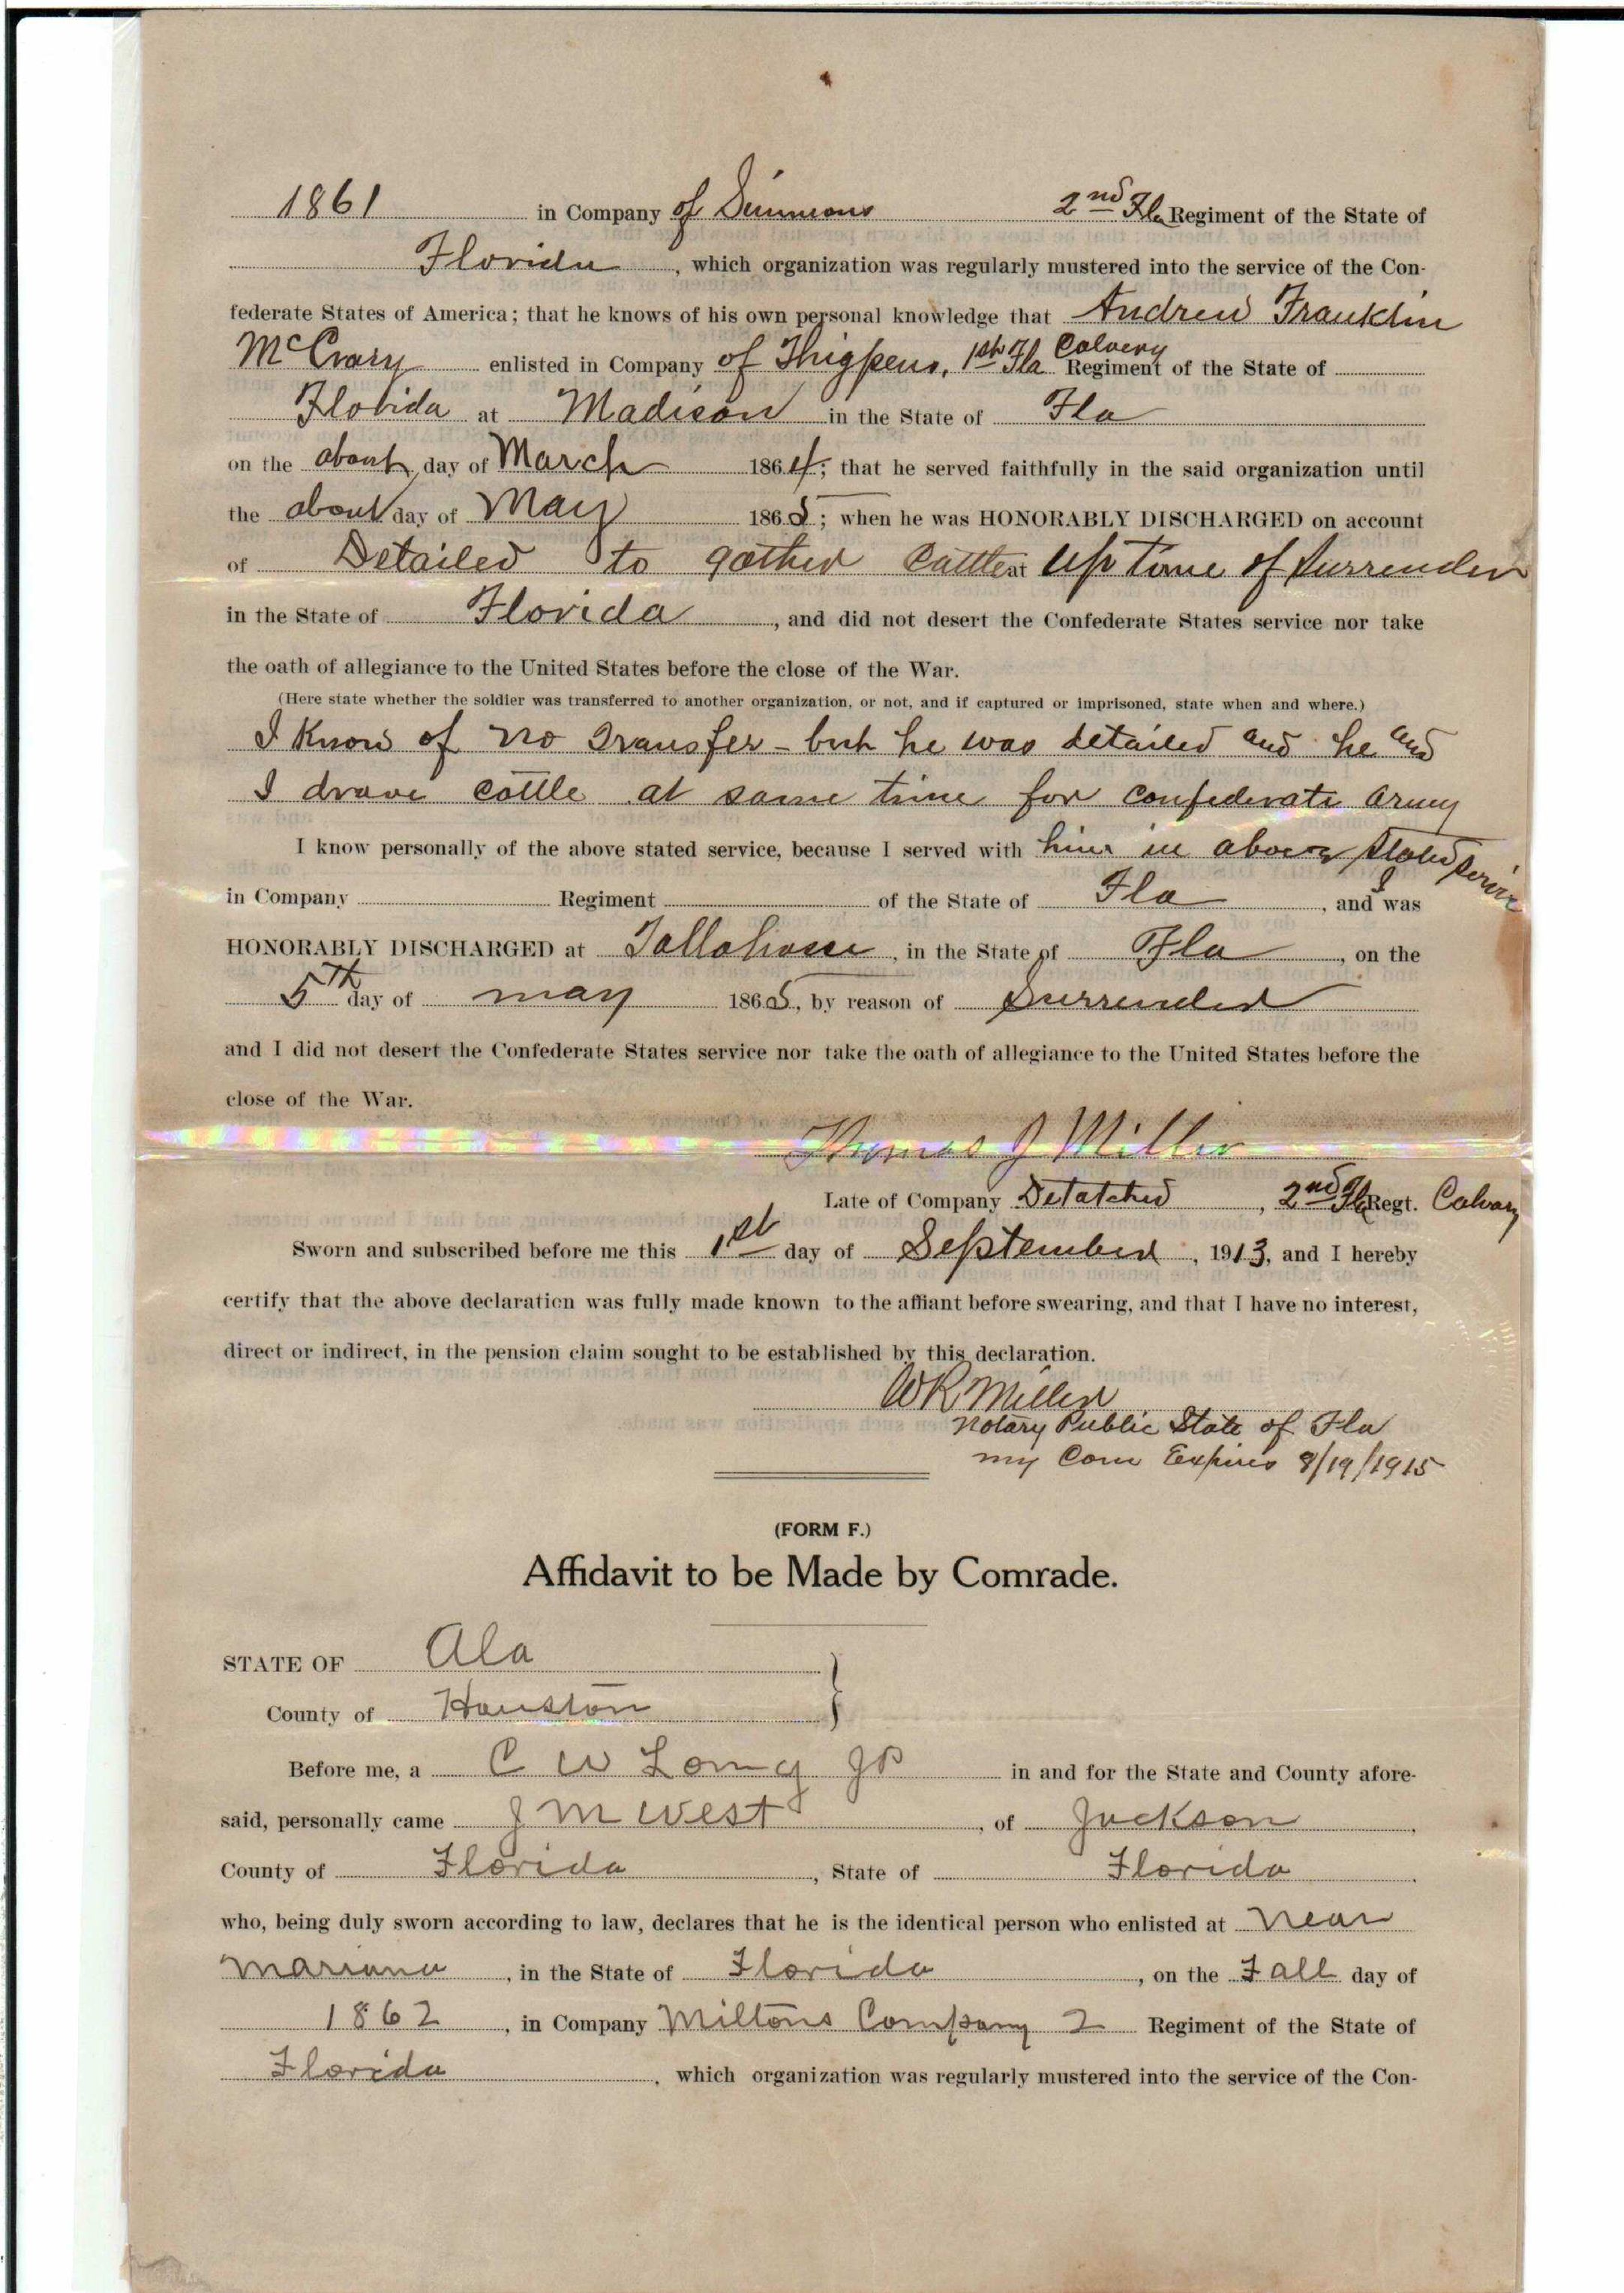 1861 in Company of Simmons 2nd Fla Regiment of the State of
Florida, which organization was regularly mustered into the service of the Con-
federate States of America; that he knows of his own personal knowledge that Andrew Franklin
McCrary enlisted in Company of Thigpens, 1st Fla Calvery Regiment of the State of
Florida at Madison in the State of Fla
on the about day of March 1864; that he served faithfully in the said organization until
the about day of May 1865; when he was HONORABLY DISCHARGED on account
of Detailed to gather Cattle at up time of Surrender
in the State of Florida, and did not desert the Confederate States service nor take
the oath of allegiance to the United States before the close of the War.
(Here state whether the soldier was transferred to another organization, or not, and if captured or imprisoned, state when and where.)
I Know of no Transfer - but he was detailed and he and
I drove cattle at same time for confederate army
I know personally of the above stated service, because I served with him in above stated service
in Company Regiment of the State of Fla, and I was
HONORABLY DISCHARGED at Tallahasse, in the State of Fla, on the
5th day of may 1865, by reason of Surrender
and I did not desert the Confederate States service nor take the oath of allegiance to the United States before the
close of the War.
Thomas J Miller
Late of Company Detatched, 2nd Fla Regt. Calvary
Sworn and subscribed before me this 1st day of September, 1913, and I hereby
certify that the above declaration was fully made known to the affiant before swearing, and that I have no interest,
direct or indirect, in the pension claim sought to be established by this declaration.
WR Miller
Notary Public State of Fla
my Com Expires 8/19/1915
(FORM F.)
Affidavit to be Made by Comrade.
STATE OF Ala
County of Houston
Before me, a C W Long JP in and for the State and County afore-
said, personally came J M West, of Jackson,
County of Florida, State of Florida.
who, being duly sworn according to law, declares that he is the identical person who enlisted at near
Mariana, in the State of Florida, on the Fall day of
1862, in Company Miltons Company 2 Regiment of the State of
Florida, which organization was regularly mustered into the service of the Con-